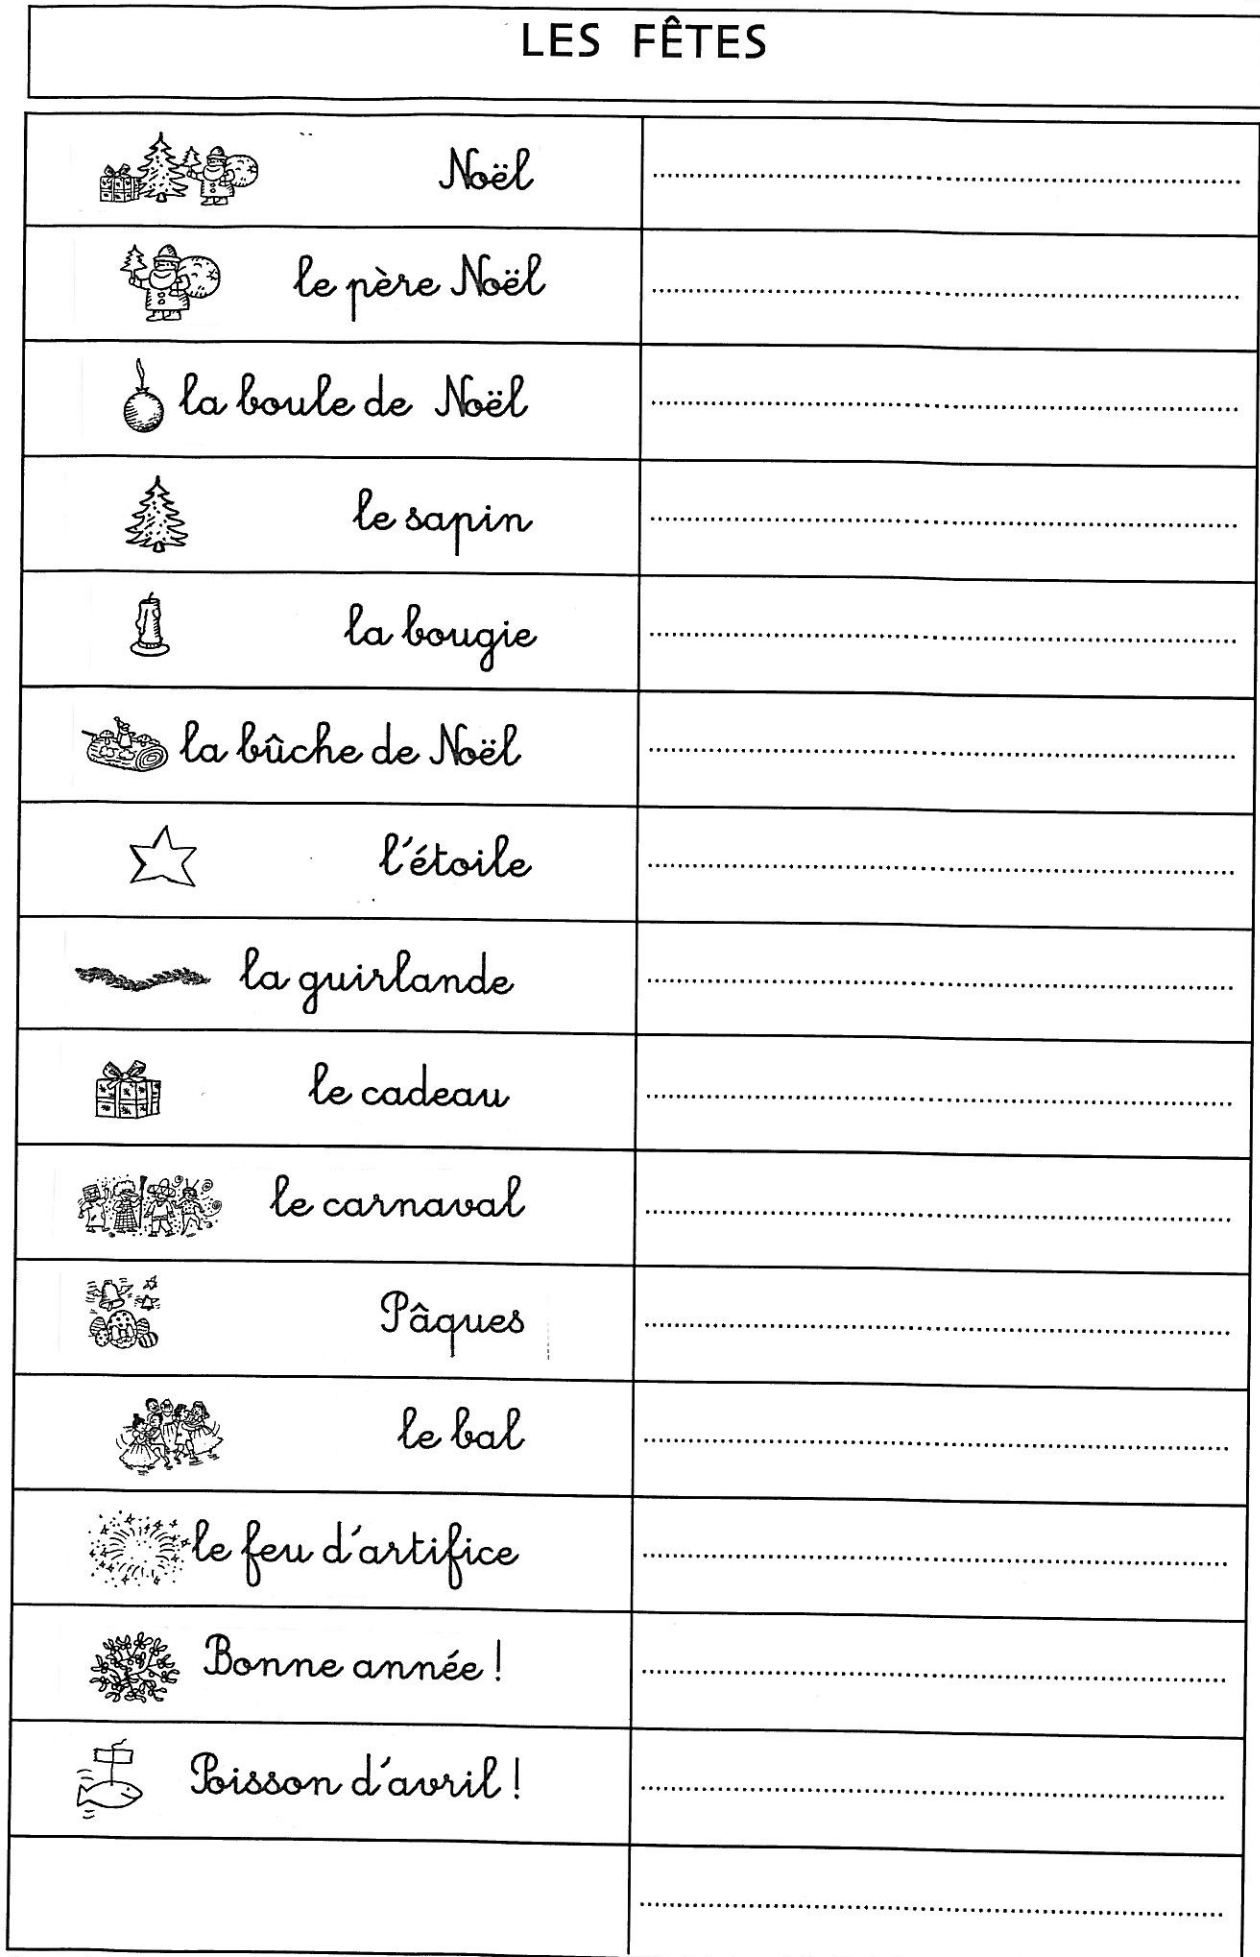 LES FÊTES
Noël
le père Noël
la boule de Noël
le sapin
la bougie
la bûche de Noël
l'étoile
la guirlande
le cadeau
le carnaval
Pâques
le bal
le feu d'artifice
Bonne année !
Poisson d'avril !